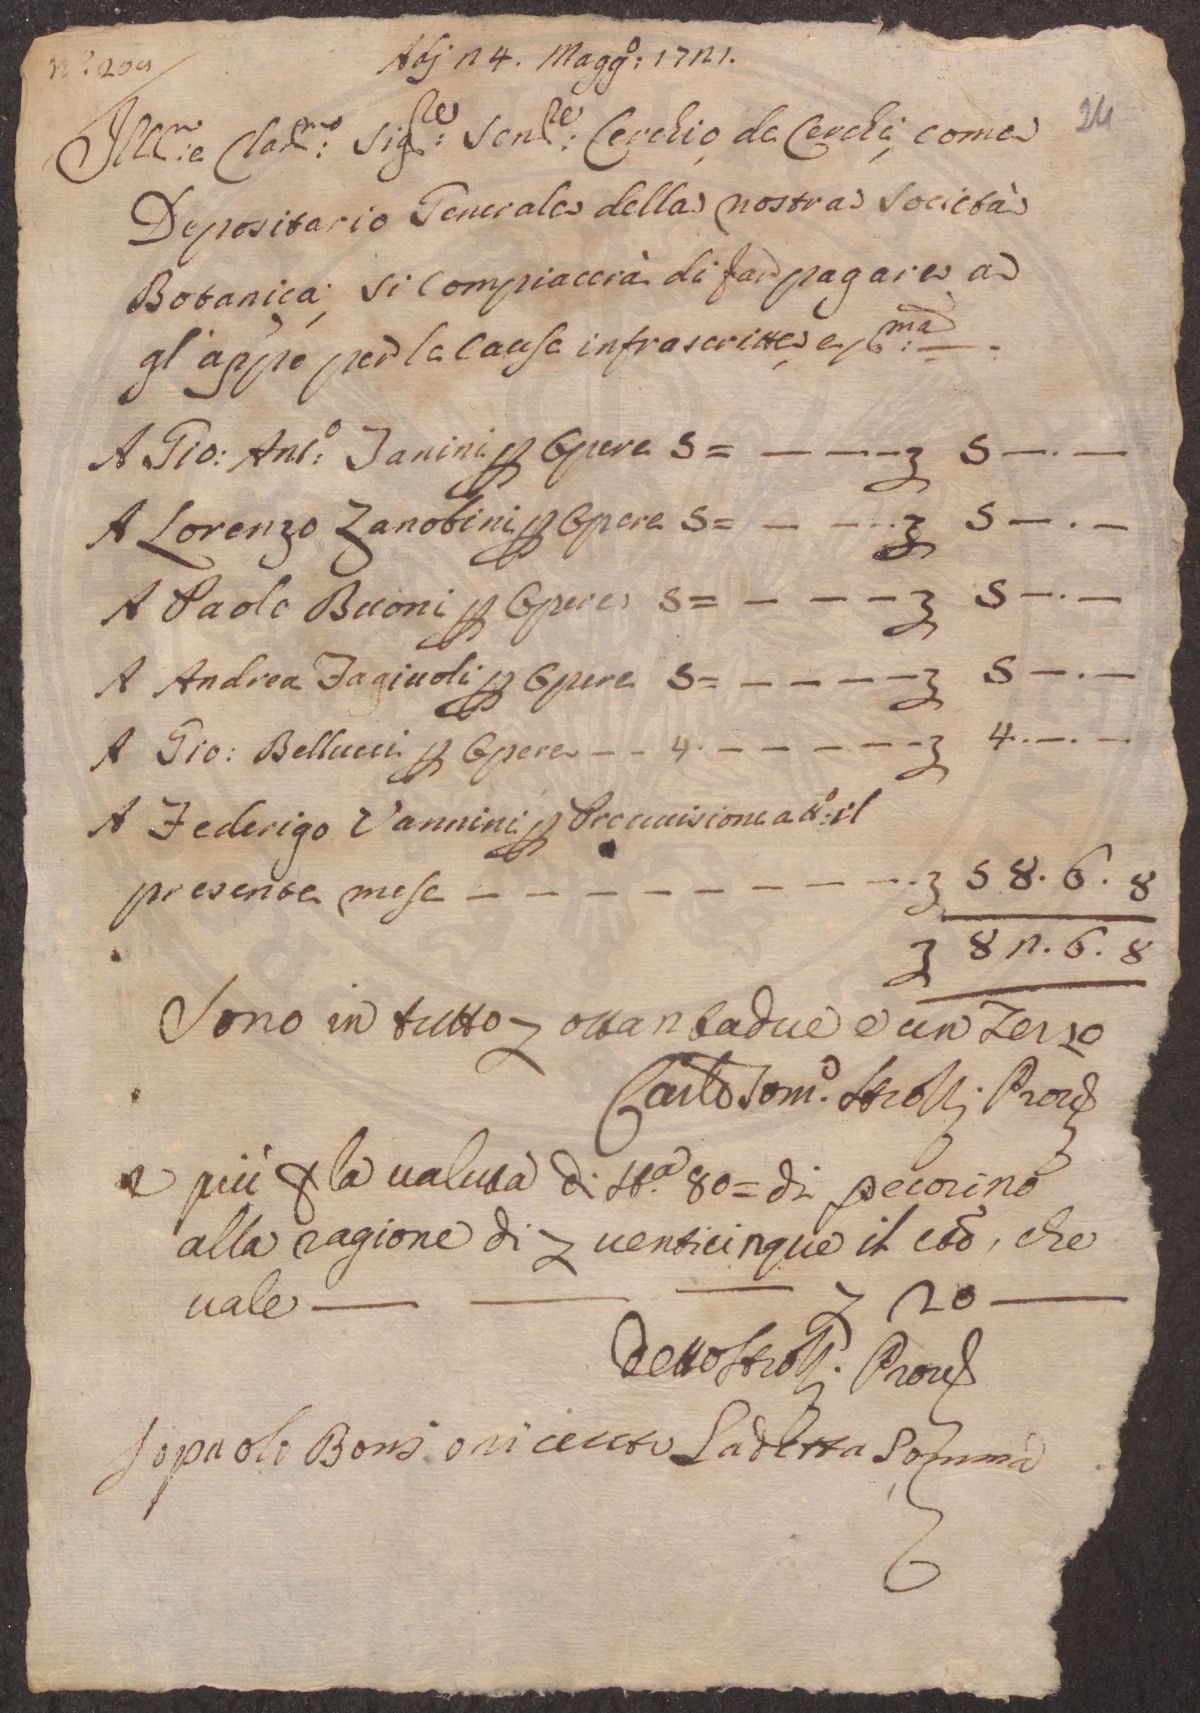 Nº 209
Adj 24. Maggº: 1721.
24
Illmo: e Clarmo: Sigre: Senre: Cerchio de Cerchi, come
Depositario Generale della nostra Società
Botanica, si compiacerà di far pagare a
gl' appo per le cause infrascritte, e pma:
A Gio: Antº: Fanini p Opere 5= — — — 5 — . —
A Lorenzo Zanobini p Opere 5= — — — 5 — . —
A Paolo Buoni p Opere 5= — — — 5 — . —
A Andrea Fagiuoli p Opere 5= — — — — 5 — . —
A Gio: Bellucci p Opere — — 4. — — — — — 4. — . —
A Federigo Vannini p Provvisione a tº: il
presente mese — — — — — — — — — 58. 6. 8
82. 6. 8
Sono in tutto ottantadue e un Terzo
Carlo Tomº. Strozzi Prov
e più p la valuta di sta 80= di pecorino
alla ragione di venticinque il cto, che
vale — — — 20 —
Detto Strozzi. Prov
Io paolo Boni o riceuto La detta Somma